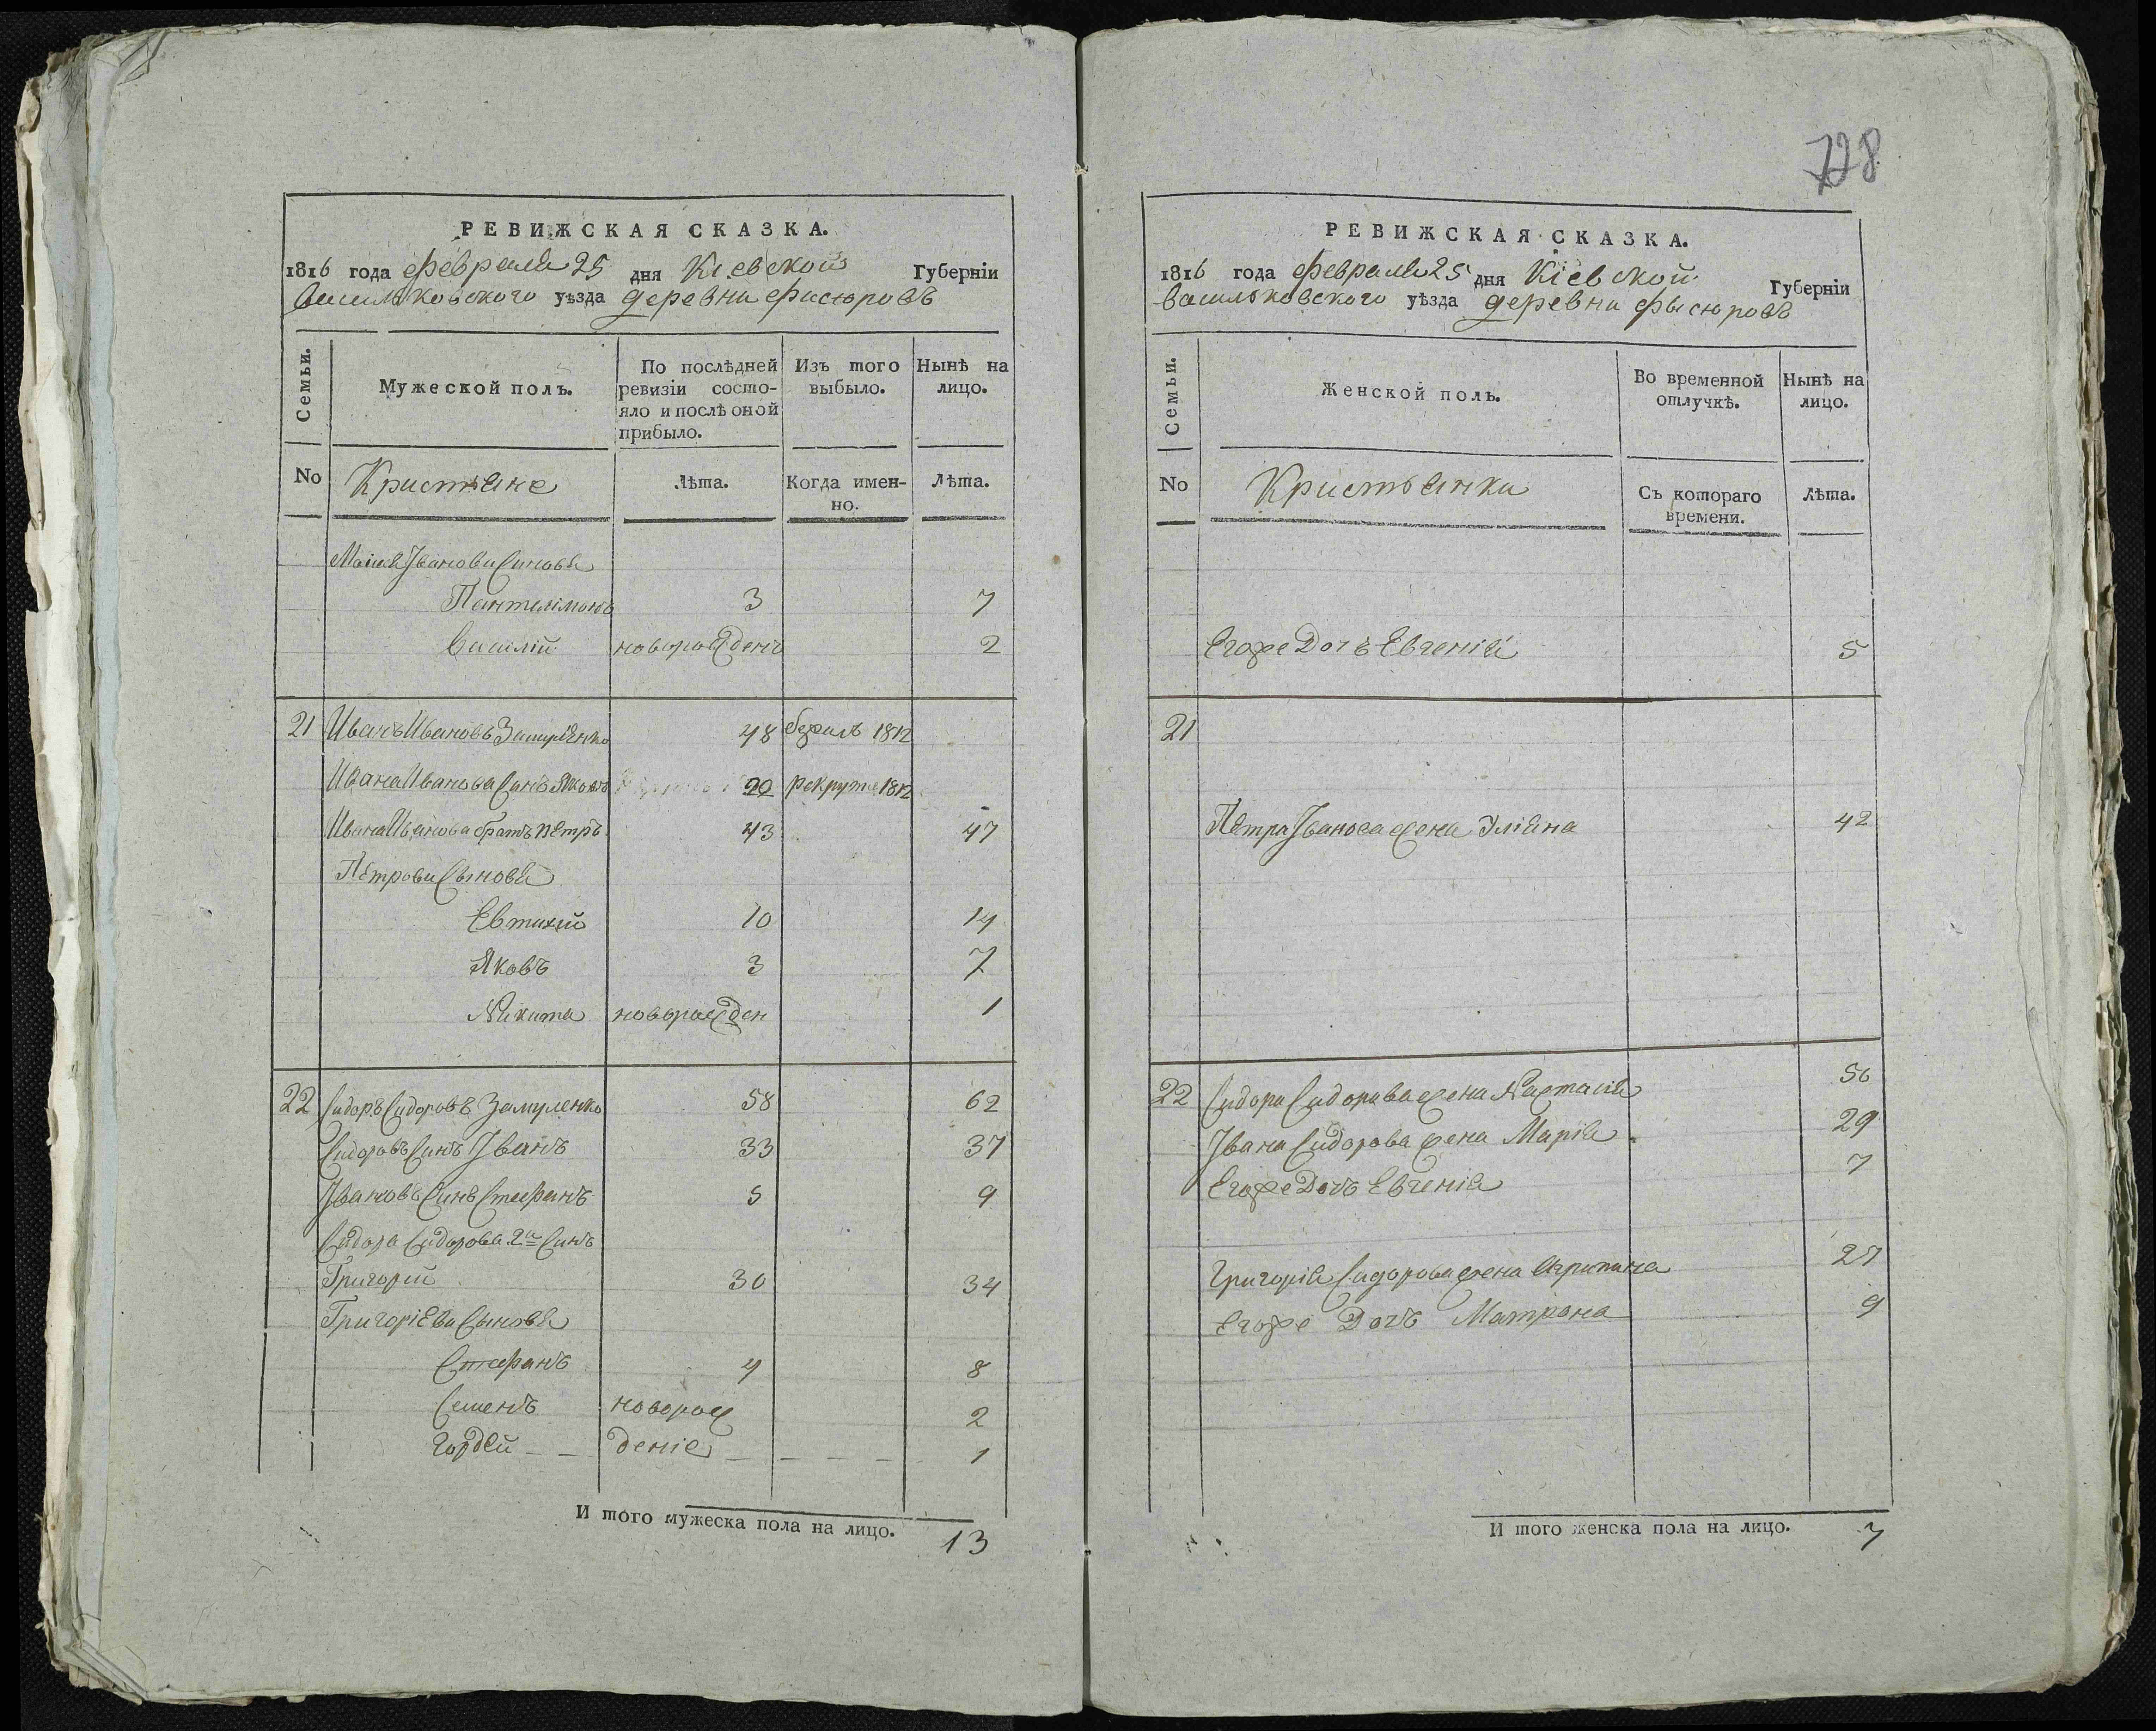 728
РЕВИЖСКАЯ СКАЗКА.
1816 года февраля 25 дня Кіевской Губерніи
Васильковского уѣзда деревни Фисюровъ
Семьи.
Мужеской полъ.
По послѣдней ревизіи состо-
яло и послѣ оной
прибыло.
Изъ того
выбыло.
Нынѣ на
лицо.
No
Кристъяне
Лѣта.
Когда имен-
но.
Лѣта.
Ивановы Синовя
Пантелімонъ 3 7
Василій новорожденъ 2
21 Иванъ Ивановъ 48 бежалъ 1812
Ивана Иванова Синъ Яковъ 20 рекрутъ 1812
Ивана Иванова братъ Петръ 43 47
Петровы Сыновя
Евтихій 10 14
Яковъ 3 7
Никита новорожден 1
22 Сидоръ Сидоровъ Замуленко 58 62
Сидоровъ Синъ Іванъ 33 37
Івановъ Синъ Стефанъ 5 9
Сидора Сидорова 2й Синъ
Григорій 30 34
Григоріевы Сыновя
Стефанъ 4 8
Семенъ новорож 2
Гордей деніе 1
И того мужеска пола на лицо. 13
РЕВИЖСКАЯ СКАЗКА.
1816 года февраля 25 дня Кіевской Губерніи
Васильковского уѣзда деревни Фысюровъ
Семьи.
Женской полъ.
Во временной
отлучкѣ.
Нынѣ на
лицо.
No
Кристьянки
Съ котораго
времени.
Лѣта.
Егоже Дочь Евгенія 5
21
Петра Іванова жена Уліяна 42
22 Сидора Сидорова жена Настасія 56
Івана Сидорова жена Марія 29
Егоже Дочъ Евгенія 7
Григорія Сидорова жена Агрипина 27
Егоже Дочъ Матрона 9
И того женска пола на лицо. 7